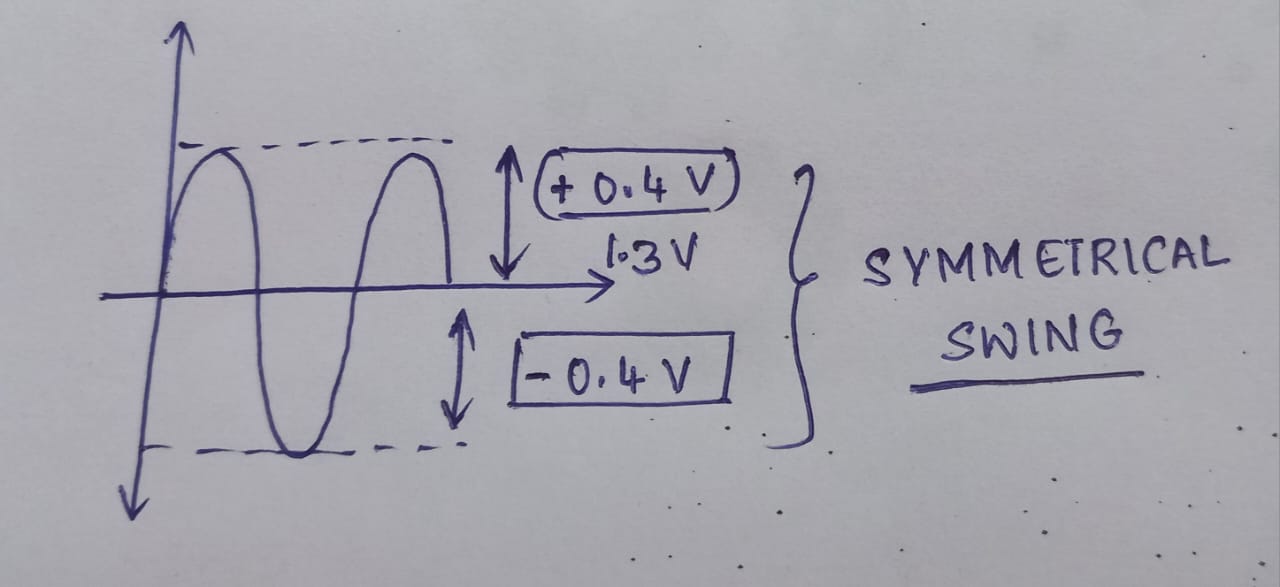 + 0.4 V
1.3 V
- 0.4 V
SYMMETRICAL
SWING